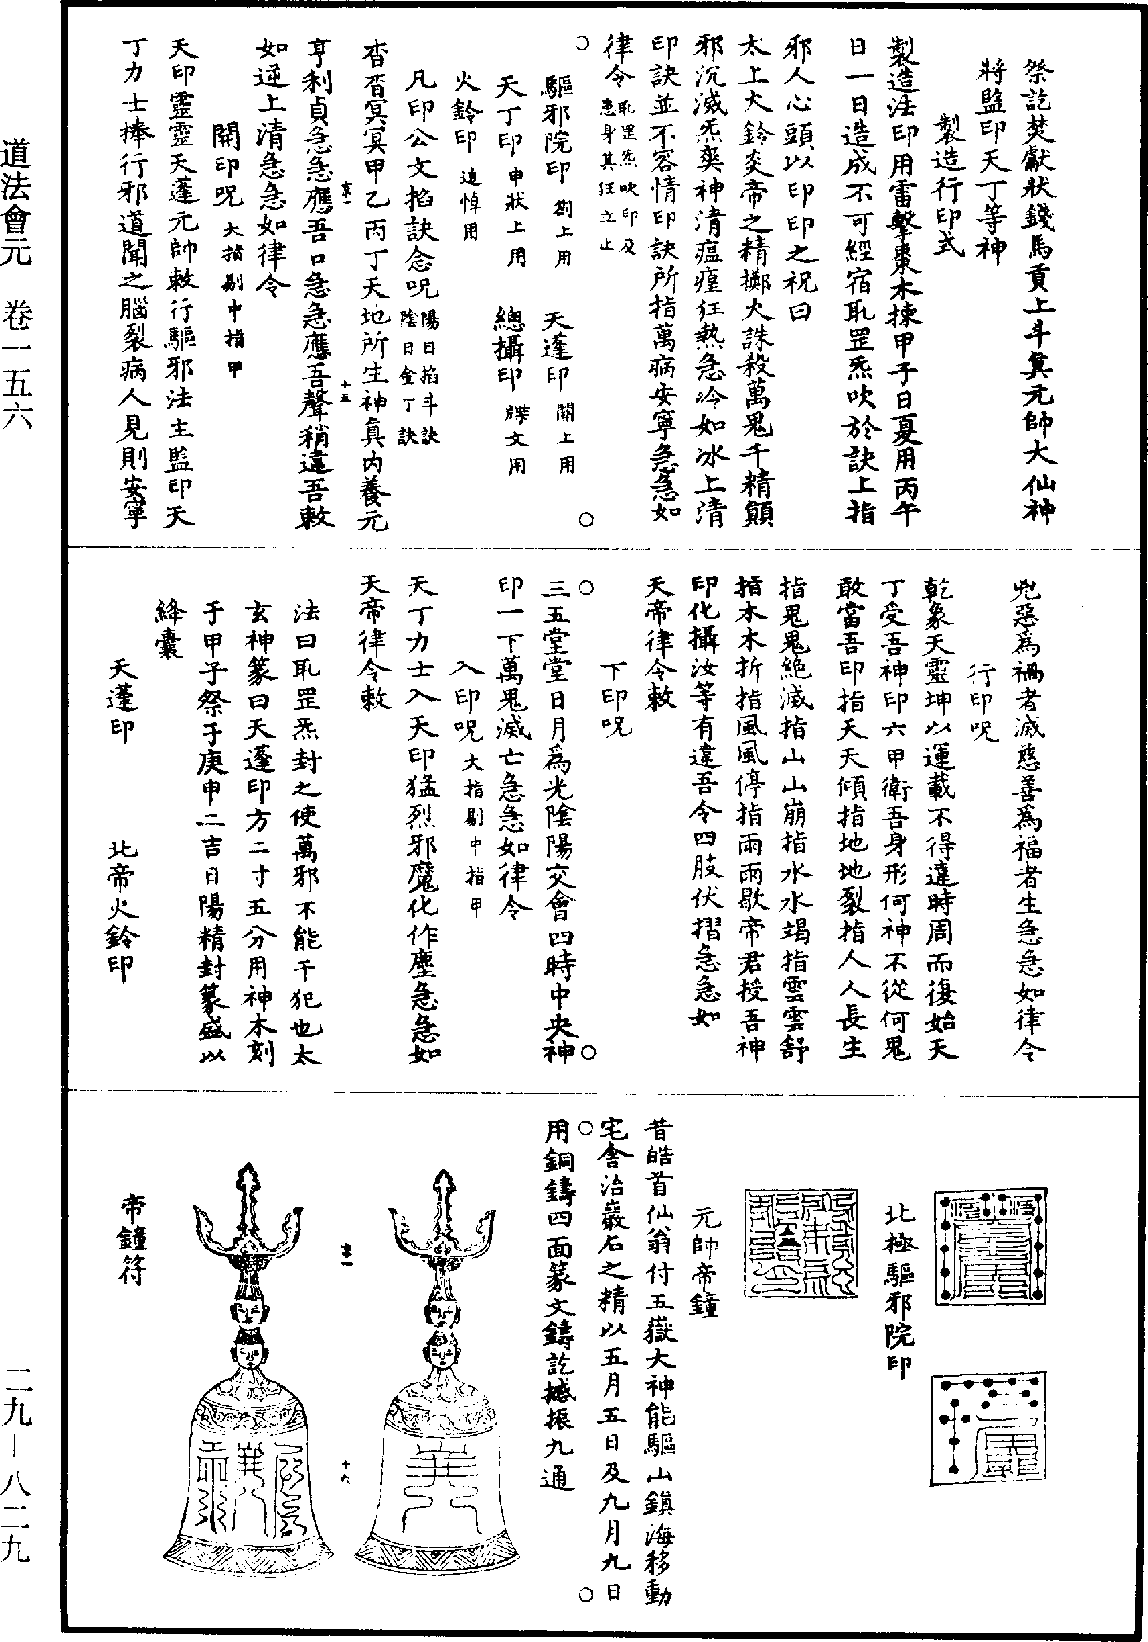 祭訖焚獻狀錢馬貢上斗眞元帥大仙神
將監印天丁等神
製造行印式
製造法印用雷擊棗木揀甲子日夏用丙午
日一日造成不可經宿取罡炁吹於訣上指
邪人心頭以印印之祝曰
太上大鈴炎帝之精擲火誅殺萬鬼千精顛
邪沉滅炁爽神清瘟瘟狂熱急冷如冰上清
印訣並不容情印訣所指萬病安寧急急如
律令取罡炁吹印及患身其狂立止
驅邪院印 劄上用 天蓬印 關上用
天丁印 申狀上用 總攝印 牒文用
火鈴印 追悼用
凡印公文掐訣念呪 陽日掐斗訣陰日金丁訣
杳杳冥冥甲乙丙丁天地所生神眞內養元
亨利貞急急應吾口急急應吾聲稍違吾敕
如逆上清急急如律令
開印呪 大指剔中指甲
天印靈靈天蓬元帥敕行驅邪法主監印天
丁力士捧行邪道聞之腦裂病人見則安寧
兇惡爲禍者滅慈善爲福者生急急如律令
行印呪
乾象天靈坤以運載不得違時周而復始天
丁受吾神印六甲衛吾身形何神不從何鬼
敢當吾印指天天傾指地地裂指人人長生
指鬼鬼絶滅指山山崩指水水竭指雲雲舒
指木木折指風風停指雨雨歇帝君授吾神
印化攝汝等有違吾令四肢伏摺急急如
天帝律令敕
下印呪
三五堂堂日月爲光陰陽交會四時中央神
印一下萬鬼滅亡急急如律令
入印呪 大指剔中指甲
天丁力士入天印猛烈邪魔化作塵急急如
天帝律令敕
法曰取罡炁封之使萬邪不能干犯也太
玄神篆曰天蓬印方二寸五分用神木刻
于甲子祭于庚申二吉日陽精封篆盛以
絳囊
天蓬印 北帝火鈴印
北極驅邪院印
元帥帝鐘
昔皓首仙翁付五嶽大神能驅山鎮海移動
宅舍治巖石之精以五月五日及九月九日
用銅鑄四面篆文鑄訖撼振九通
帝鐘符
道法會元 卷一五六
二九—八二九